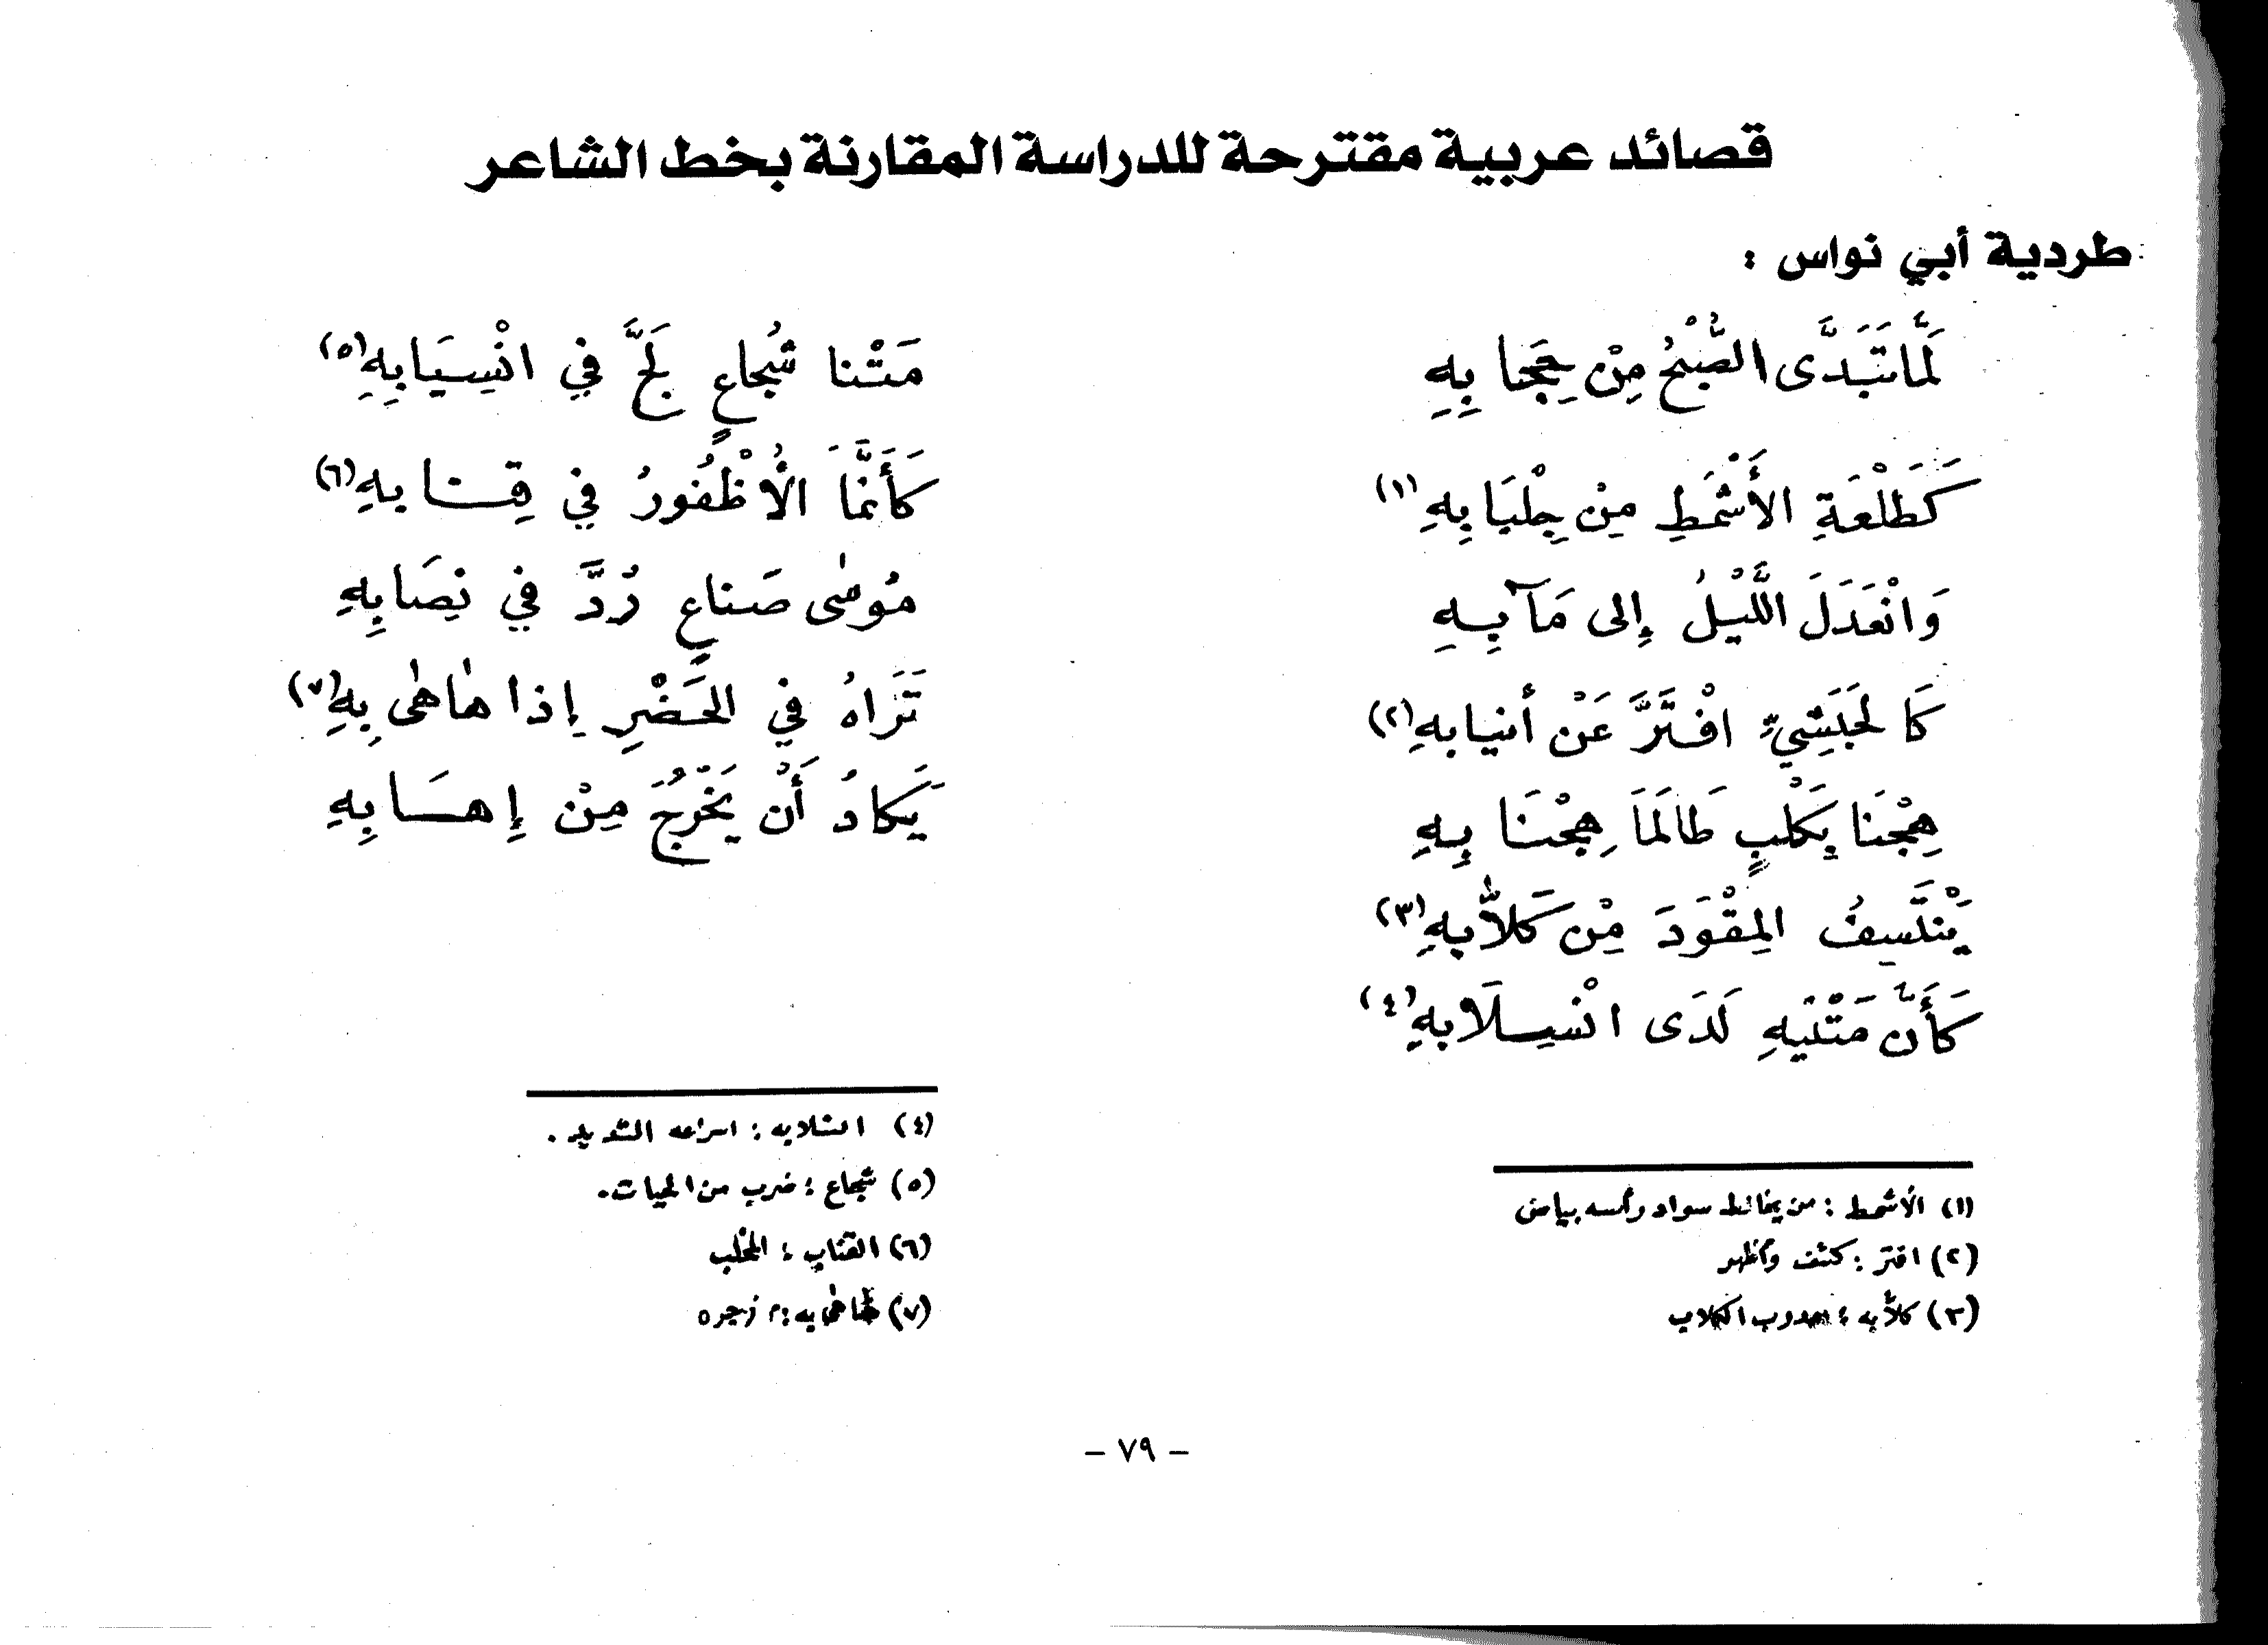 قصائد عربية مقترحة للدراسة المقارنة بخط الشاعر
طردية أبي نواس :
لَمَّا تَبَدَّى الصُّبْحُ مِنْ حِجَابِهِ
كَطَلْعَةِ الأَشْمَطِ مِنْ جِلْبَابِهِ (١)
وَانْعَدَلَ اللَّيْلُ إِلى مَآبِهِ
كَالحَبَشِيِّ افْتَرَّ عَنْ أنيابهِ (٢)
هِجْنَا بِكَلْبٍ طَالَمَا هِجْنَا بِهِ
يَنْتَسِفُ المِقْوَدَ مِنْ كَلاَّبِهِ (٣)
كَأَنَّ مَتْنَيْهِ لَدَى انْسِلَابِهِ (٤)
مَتْنا شُجاعٍ لَجَّ في انْسِيَابِهِ (٥)
كَأَنَّمَا الأُظْفُورُ في قِنابهِ (٦)
مُوسٰى صَناعٍ رُدَّ في نِصَابِهِ
تَرَاهُ في الحَضْرِ إذا هٰاهٰى بِهِ (٧)
يَكادُ أَنْ يَخْرُجَ مِنْ إِهَابِهِ
(١) الأشمط : من يخالط سواد رأسه بياض
(٢) افتر : كشف وأظهر
(٣) كلاَّبه : مدرب الكلاب
(٤) انسلابه : اسراعه الشديد .
(٥) شجاع : ضرب من الحيات .
(٦) القناب : المخلب
(٧) هاهى به : زجره
- ٧٩ -